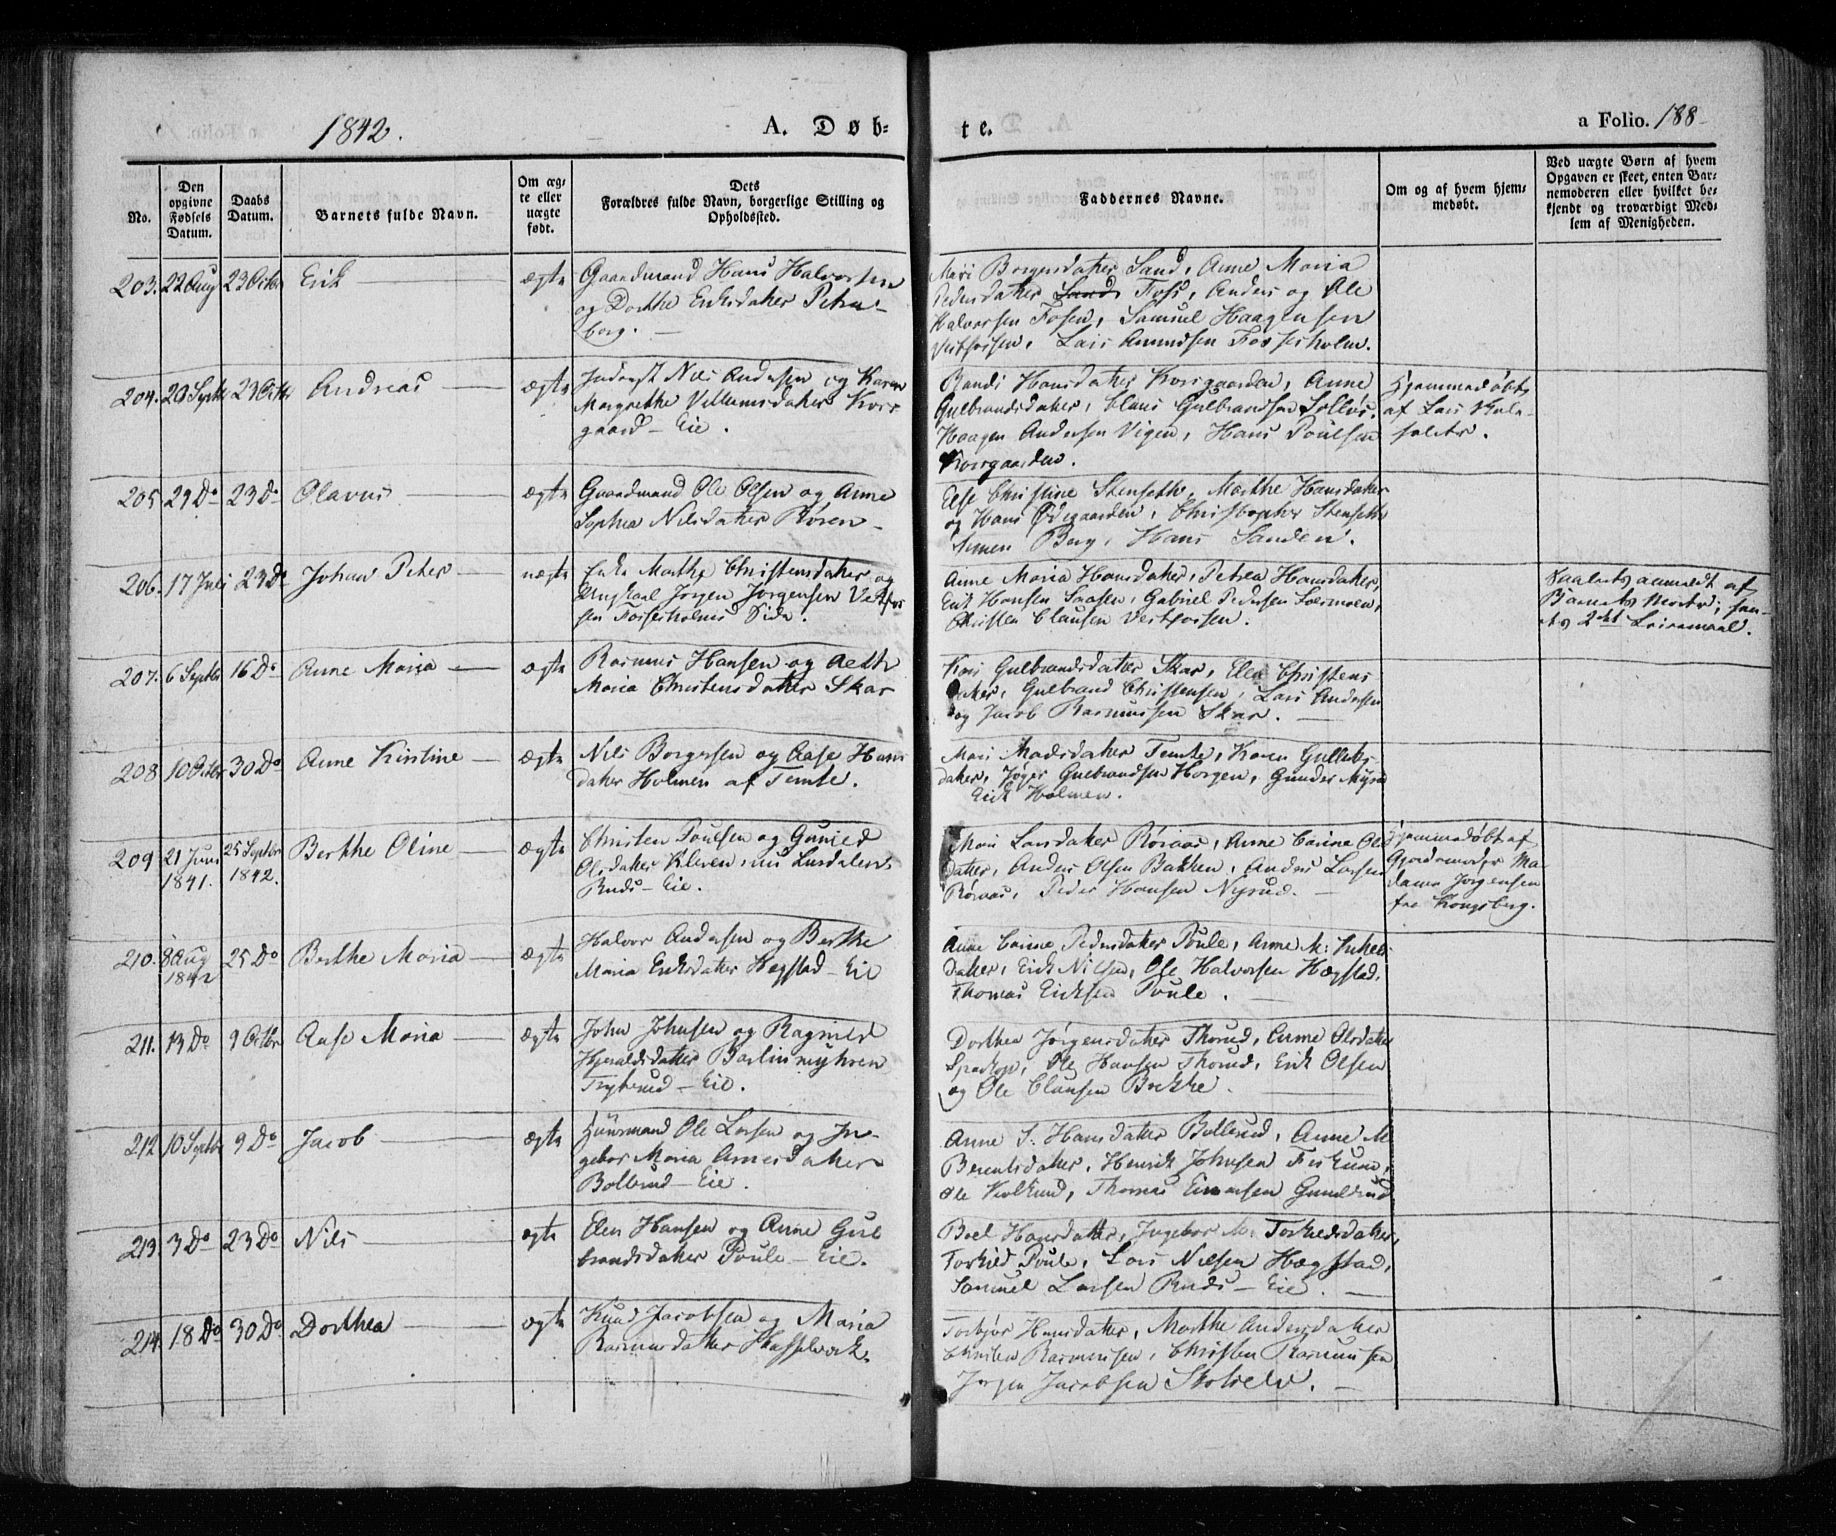 1842.
A. Døb-
te.
a Folio. 188
No.
Den opgivne Fødsels Datum.
Daabs Datum.
Barnets fulde Navn.
Om ægte eller uægte født.
Dets Forældres fulde Navn, borgerlige Stilling og Opholdssted.
Faddernes Navne.
Om og af hvem hjemmedøbt.
Ved uægte Børn af hvem Opgaven er skeet, enten Barnemoderen eller hvilket bekjendt og troværdigt Medlem af Menigheden.
203. 22 Aug 23 Octbr Erik ægte
Gaardmand Hans Halvorsen
og Dorthe Eriksdatter Petersborg.
Mari Borgersdatter Sand, Anne Maria
Pedersdatter Foss, Anders og Ole
Halvorsen Fosen, Samuel Haagensen
Vestfossen, Lars Amundsen Fosseholm.
204. 20 Septbr 23 Octbr Andreas ægte
Inderst Nils Andersen og Karen
Margrethe Villumsdatter Kors
gaard - Eie.
Randi Hansdatter Korsgaarden, Anne
Gulbrandsdatter, Claus Gulbrandsen
Haagen Andersen Vigen, Hans Poulsen
Korsgaarden.
Hjemmedøbt
af Lars
205 29 Do 23 Do Olavus ægte
Gaardmand Ole Olsen og Anne
Sophie Nilsdatter Røren
Else Christine Stenseth, Marthe Hansdatter
og Hans Ødegaarden, Christopher Stenseth
Simen Berg, Hans Sanden.
206. 17 Juli 23 Do Johan Peter uægte
Enke Marthe Christensdatter og
Ungkarl Jørgen Jørgensen Vestfos
sen Fosseholms Eie.
Anne Maria Hansdatter, Petrea Hansdatter,
Erik Hansen Saasen, Gabriel Pedersen
Christen Clausen Vestfossen.
anmeldt af
Barnets Moder,
2det Leiermaal.
207. 6 Septbr 16 Do Anne Maria ægte
Rasmus Hansen og
Maria Christensdatter Skar
Kari Gulbrandsdatter Skar, Elen Christens
datter, Gulbrand Christensen, Lars Andersen
og Jacob Rasmussen Skar.
208 10 Octbr 30 Do Anne Kristine ægte
Nils Borgersen og Aase Hans
datter Holmen af Temte.
Mari Madsdatter Temte, Karen Gulbrands
datter, Gulbrandsen Horgen, Gunder Myra
Erik Holmen.
209 21 Juni 1841. 25 Septbr 1842. Berthe Oline ægte
Christen Poulsen og Gunild
Olsdatter Kleven
Ruds - Eie.
Mari Larsdatter Røraas, Anne Carine Ols
datter, Anders Olsen Bakken, Anders Larsen
Røraas, Peder Hansen Nyrud.
Hjemmedøbt af
Gjordemoder Ma-
dame Jørgensen
fra Kongsberg.
210. 8 Aug 1842 25 Do Berthe Maria ægte
Halvor Andersen og Berthe
Maria Eriksdatter Hegstad - Eie
Anne Carine Pedersdatter Poule, Anne M:
datter, Erik Nilsen, Ole Halvorsen Hægstad,
Thomas Eriksen Poule.
211. 13 Do 9 Octbr Aase Maria ægte
John Johnsen og Ragnild
Haraldsdatter
Eie.
Dorthea Jørgensdatter Thorud, Anne Olsdatter
Ole Hansen Thorud, Erik Olsen
og Ole Clausen Bekke.
212 10 Septbr 9 Do Jacob ægte
Huusmand Ole Larsen og In-
gebor Maria Arnesdatter
Bollerud - Eie.
Anne S. Hansdatter Bollerud, Anne M
Berentsdatter, Henrik Johnsen Fiskum,
Ole Thomas
213. 3 Do 23 Do Nils ægte
Elen Hansen og Anne Gul
brandsdatter Poule - Eie.
Boel Hansdatter, Ingebor M. Torkildsdatter,
Torkild Poule, Lars Nilsen Hægstad,
Samuel Larsen Ruds - Eie.
214. 18 Do 30 Do Dorthea ægte
Knud Jacobsen og Maria
Rasmusdatter Hasselbæk.
Torbjør Hansdatter, Marthe Andersdatter
Christen Rasmussen, Christen Rasmussen
Jørgen Jacobsen